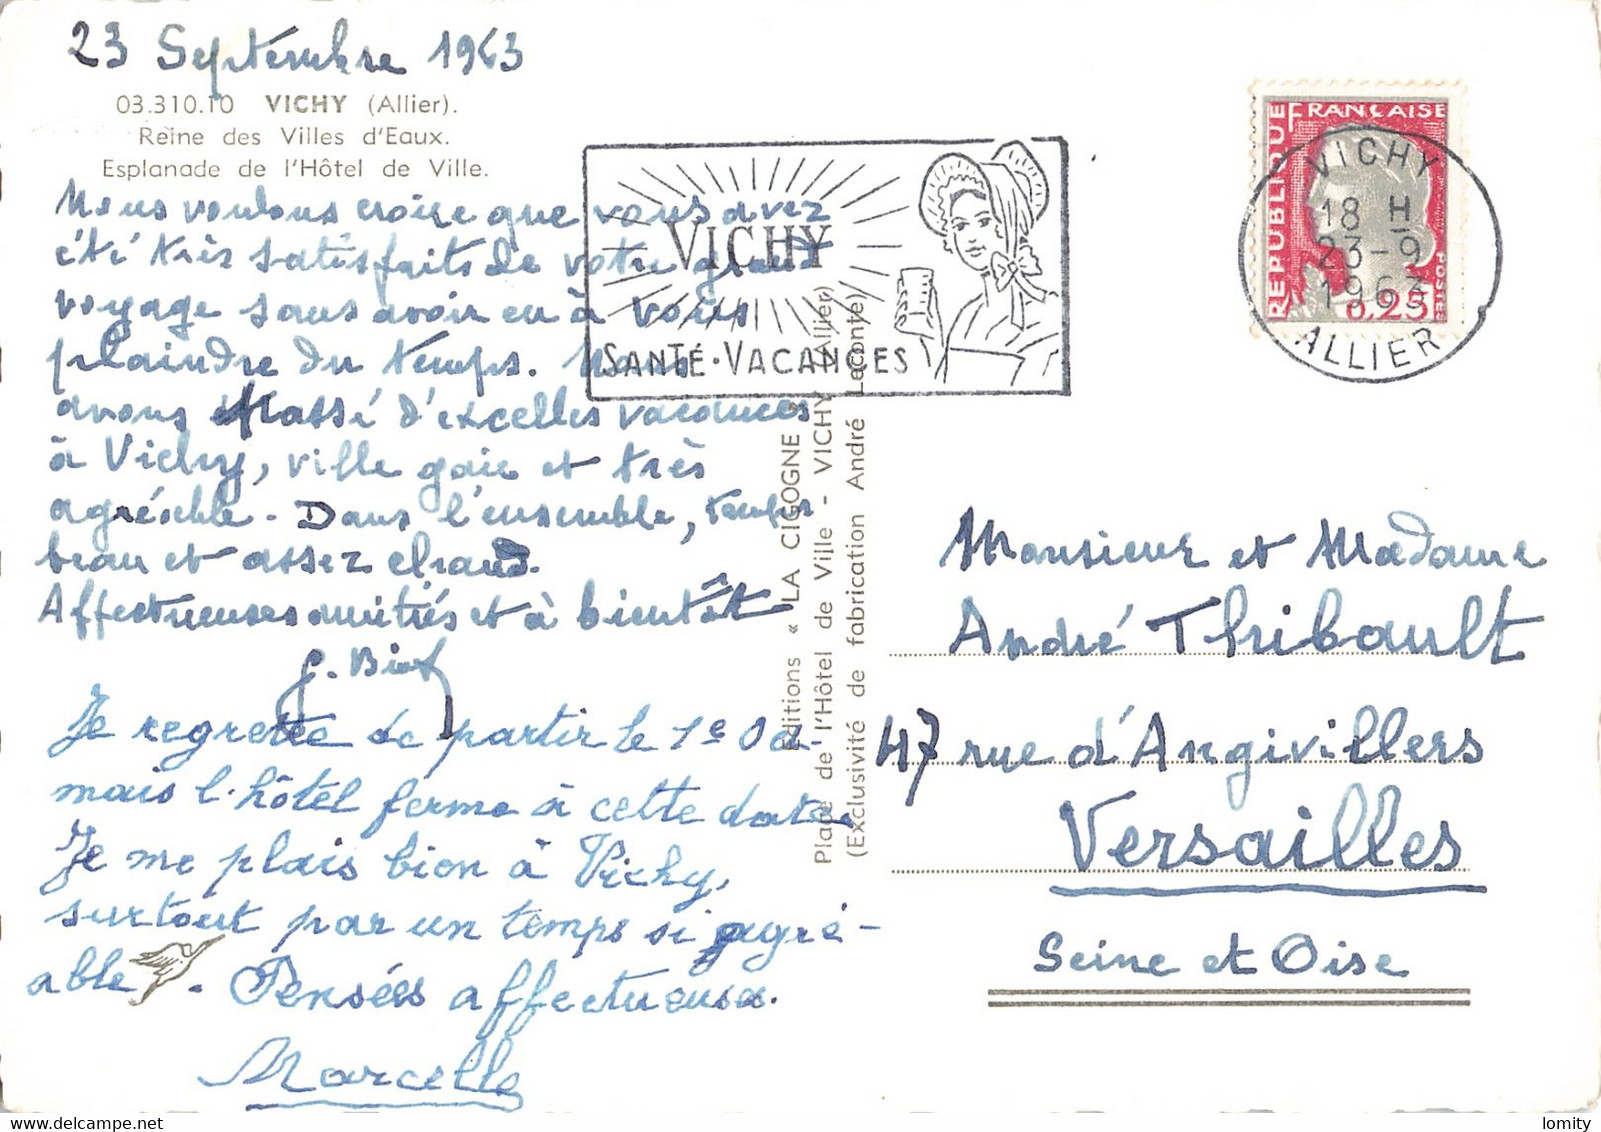 23 Septembre 1963
03.310.10 VICHY (Allier).
Reine des Villes d'Eaux.
Esplanade de l'Hôtel de Ville.
Nous voulons croire que vous avez
été très satisfaits de votre grand
voyage sans avoir eu à vous
plaindre du temps. Nous
avons passé d'excelles vacances
à Vichy, ville gaie et très
agréable. Dans l'ensemble, temps
beau et assez chaud.
Affectueuses amitiés et à bientôt
Je regrette de partir le 1e Oct-
mais l'hôtel ferme à cette date
Je me plais bien à Vichy,
surtout par un temps si agré-
able. Pensées affectueuses.
Marcelle
VICHY
SANTÉ·VACANCES
Editions « LA CIGOGNE »
Place de l'Hôtel de Ville - VICHY (Allier)
(Exclusivité de fabrication André Laconte)
REPUBLIQUE FRANÇAISE
POSTES
0,25
VICHY
18 H
23-9
1963
ALLIER
Monsieur et Madame
André Thibault
47 rue d'Angivillers
Versailles
Seine et Oise
lomity